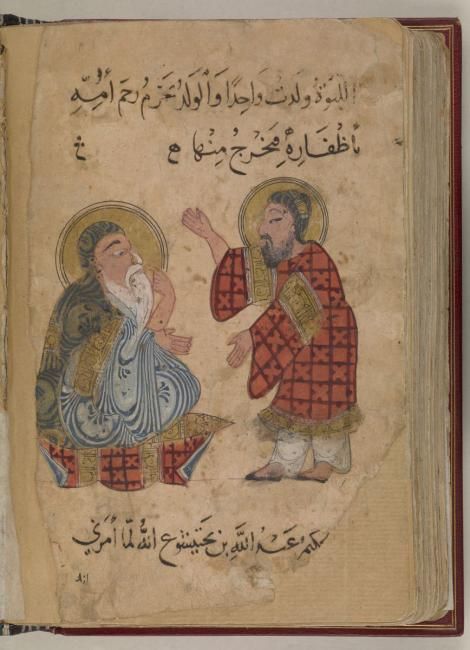 اللبوة ولدت واحدا والولد يخرم رحم أمه
بأظفاره فيخرج منها
عبد الله بن بختيشوع انه لما أمرني